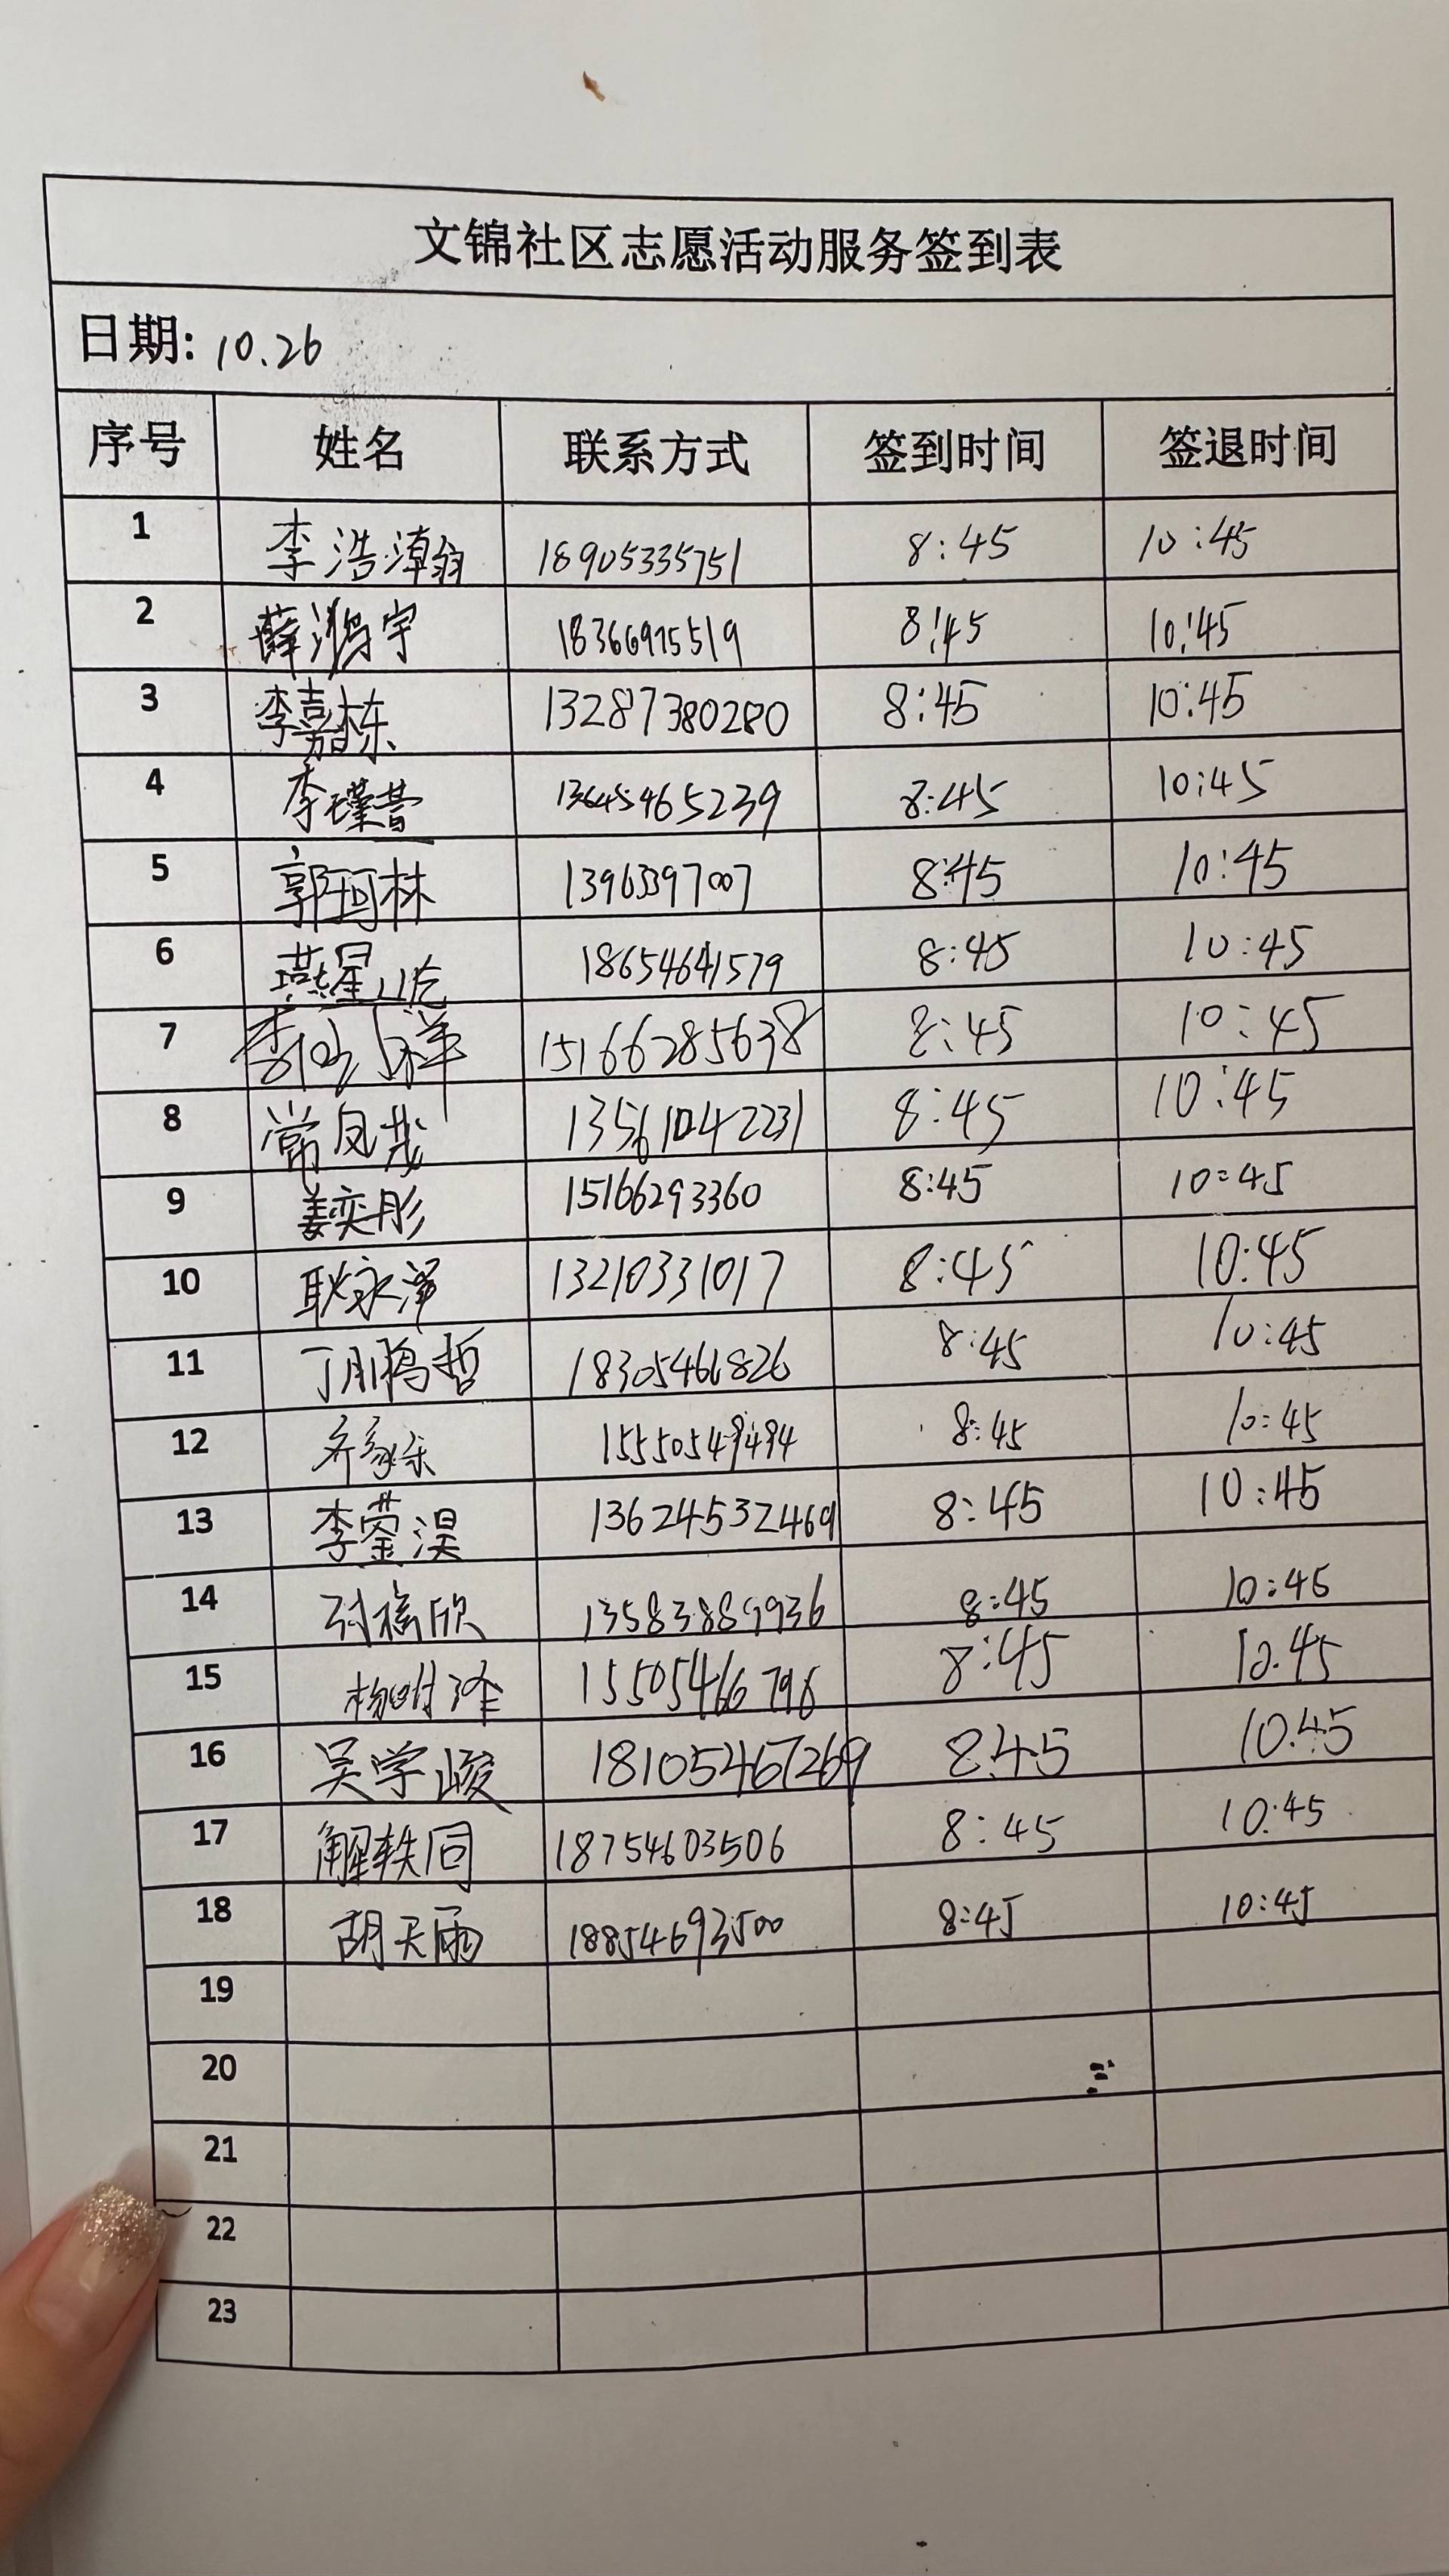 文锦社区志愿活动服务签到表
日期: 10.26
序号 姓名 联系方式 签到时间 签退时间
1 李浩瀚 18905335751 8:45 10:45
2 薛鸿宇 18366975519 8:45 10:45
3 李嘉栋 13287380280 8:45 10:45
4 李瑾萱 13645465239 8:45 10:45
5 郭珂林 13963397007 8:45 10:45
6 燕星屹 18654641579 8:45 10:45
7 李 祥 15166285638 8:45 10:45
8 常凤龙 13561042231 8:45 10:45
9 姜奕彤 15166293360 8:45 10:45
10 耿永泽 13210331017 8:45 10:45
11 丁鹏哲 18305466826 8:45 10:45
12 齐家乐 15550549494 8:45 10:45
13 李蓥淏 13624532469 8:45 10:45
14 孙 欣 13583889936 8:45 10:45
15 杨 泽 15505466796 8:45 10.45
16 吴学峻 18105467269 8.45 10.45
17 解轶同 18754603506 8:45 10:45
18 胡天雨 18854693500 8:45 10:45
19
20
21
22
23